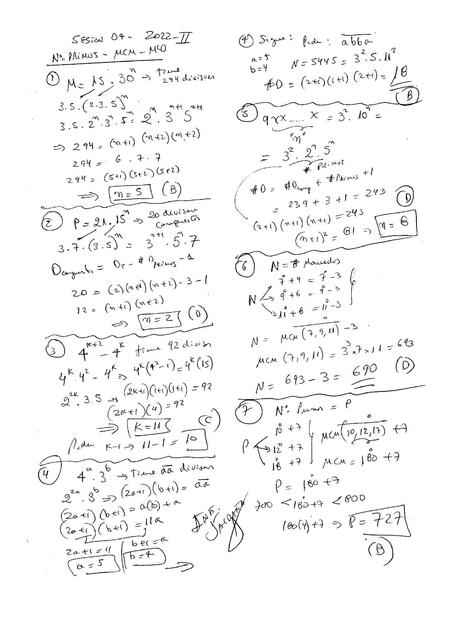 SESION 04- 2022-II
Nº PRIMOS - MCM - MCD
① M = 15 . 30ⁿ → tiene 294 divisores
3.5.(2.3.5)ⁿ
3.5.2ⁿ.3ⁿ.5ⁿ = 2ⁿ.3ⁿ⁺¹ 5ⁿ⁺¹
⇒ 294 = (n+1)(n+2)(n+2)
294 = 6 . 7 . 7
294 = (5+1)(5+2)(5+2)
⇒ n = 5 (B)
② P = 21.15ⁿ → 20 divisores compuestos
3.7.(3.5)ⁿ = 3ⁿ⁺¹.5ⁿ.7
Dcompuestos = DT - # Dprimos - 1
20 = (2)(n+1)(n+2) - 3 - 1
12 = (n+1)(n+2)
⇒ n = 2 (D)
③ 4ᵏ⁺² - 4ᵏ tiene 92 divisor
4ᵏ.4² - 4ᵏ ⇒ 4ᵏ(4²-1) = 4ᵏ(15)
2²ᵏ.3.5 ⇒ (2k+1)(1+1)(1+1) = 92
(2k+1)(4) = 92
⇒ K = 11 (C)
Piden k-1 ⇒ 11-1 = 10
④ 4ᵃ.3ᵇ → tiene aa divisor
2²ᵃ.3ᵇ ⇒ (2a+1)(b+1) = aa
(2a+1)(b+1) = a(b)+a
(2a+1)(b+1) = 11a
2a+1 = 11 b+1 = a
a = 5 b = 4
④ Sigue: Piden: abba
a = 5
b = 4
N = 5445 = 3².5.11²
#D = (2+1)(1+1)(2+1) = 18
(B)
⑤ 9xx....x = 3².10ⁿ =
"n"
= 3².2ⁿ.5ⁿ
# Primos
#D = #Dcomp + #Dprimos + 1
= 239 + 3 + 1 = 243
(D)
(2+1)(n+1)(n+1) = 243
(n+1)² = 81 ⇒ n = 8
⑥ N = # Monedas
7̊ + 4 = 7̊ - 3
N 9̊ + 6 = 9̊ - 3
11̊ + 8 = 11̊ - 3
N = MCM(7,9,11) - 3
MCM(7,9,11) = 3².7×11 = 693
N = 693 - 3 = 690 (D)
⑦ Nº Personas = P
10̊ + 7
P 12̊ + 7 MCM(10,12,17) + 7
18̊ + 7 MCM = 180 + 7
P = 180̊ + 7
700 < 180̊ + 7 < 800
180(4) + 7 ⇒ P = 727
(B)